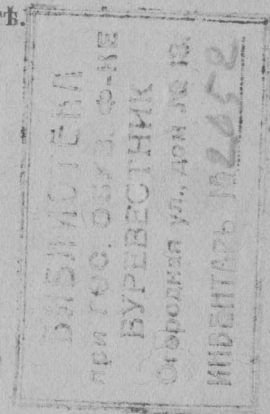 ѣ.
БИБЛИОТЕКА
при ГОС. ОБУВ. Ф-КЕ
БУРЕВЕСТНИК
Огородная ул., дом № 13.
ИНВЕНТАРЬ №